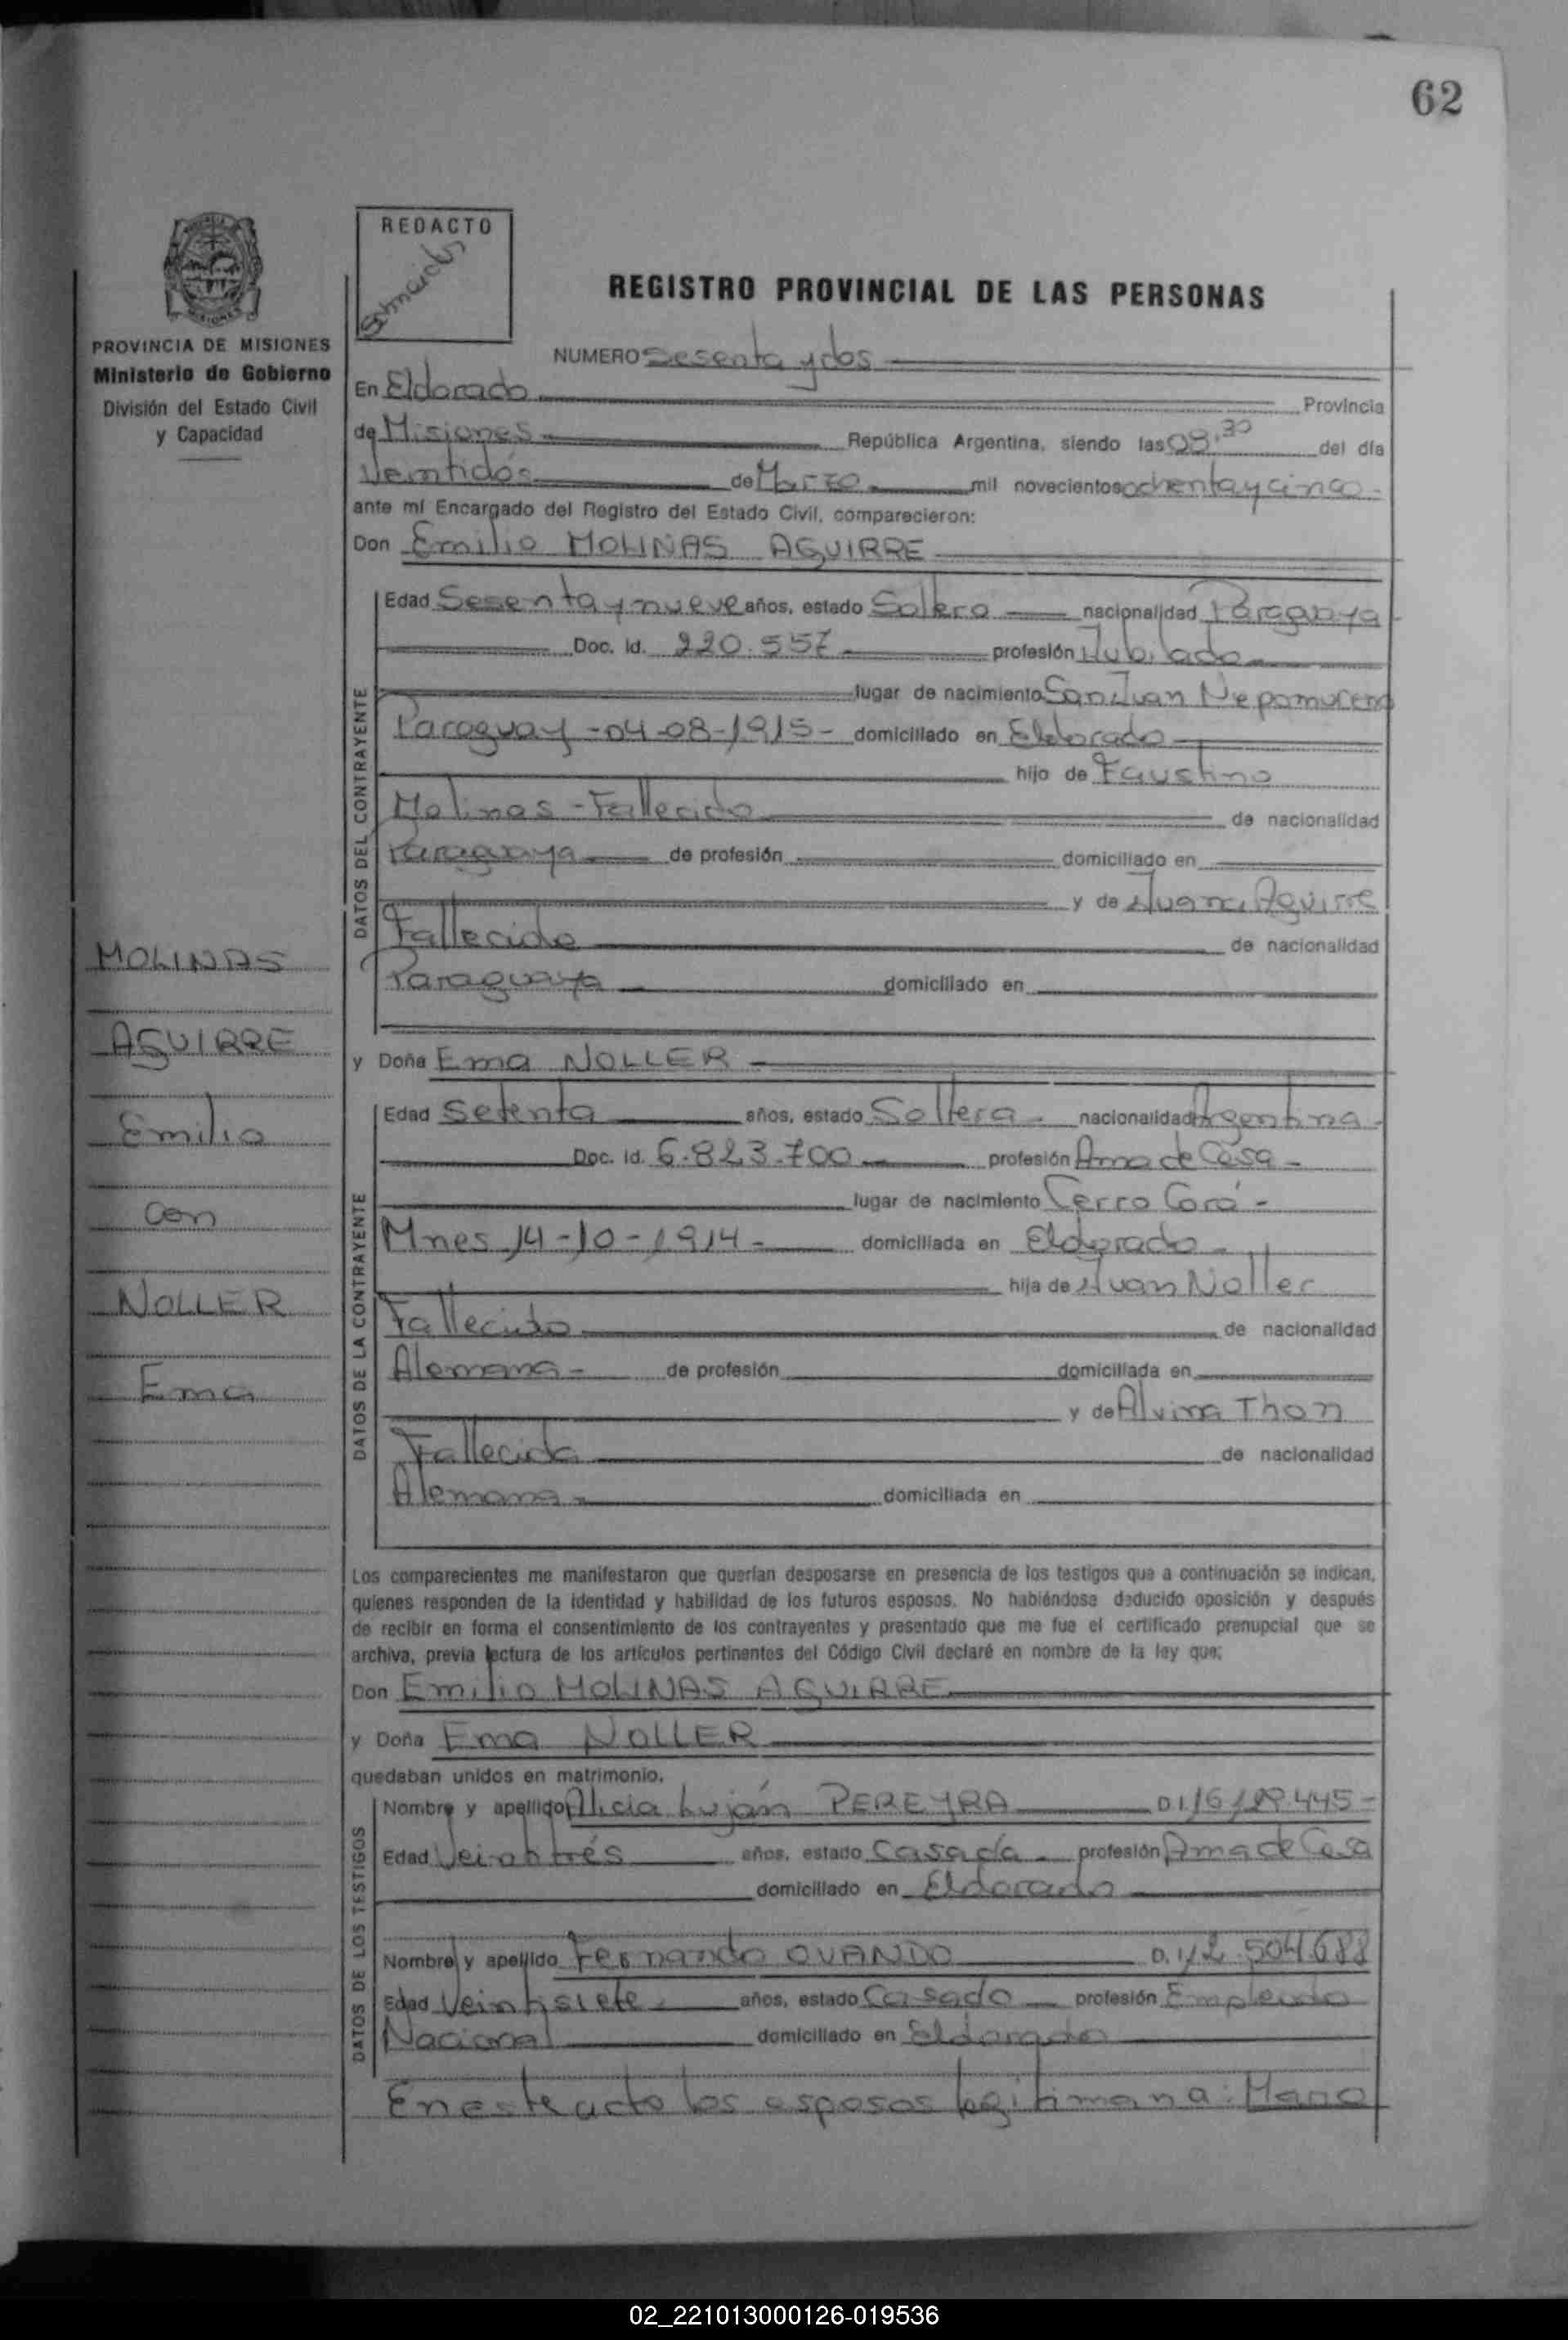 62
REDACTO
REGISTRO PROVINCIAL DE LAS PERSONAS
PROVINCIA DE MISIONES
Ministerio de Gobierno
División del Estado Civil
y Capacidad
NUMERO Sesenta y dos
En Eldorado Provincia
de Misiones República Argentina, siendo las 08:30 del día
Veintidós de Marzo mil novecientos ochenta y cinco -
ante mí Encargado del Registro del Estado Civil, comparecieron:
Don Emilio MOLINAS AGUIRRE
DATOS DEL CONTRAYENTE
Edad Sesenta y nueve años, estado Soltero nacionalidad Paraguaya
Doc. Id. 220.557 profesión Jubilado
lugar de nacimiento San Juan Nepomuceno
Paraguay - 04-08-1915 - domiciliado en Eldorado
hijo de Faustino
Molinas - Fallecido de nacionalidad
Paraguaya de profesión domiciliado en
y de Juana Aguirre
Fallecida de nacionalidad
Paraguaya domiciliado en
MOLINAS
AGUIRRE
Emilio
con
NOLLER
Ema
y Doña Ema NOLLER
DATOS DE LA CONTRAYENTE
Edad Setenta años, estado Soltera - nacionalidad Argentina -
Doc. Id. 6.823.700 profesión Ama de Casa -
lugar de nacimiento Cerro Corá -
Mnes 14-10-1914 - domiciliada en Eldorado -
hija de Juan Noller
Fallecido de nacionalidad
Alemana - de profesión domiciliada en
y de Alvina Thon
Fallecida de nacionalidad
Alemana - domiciliada en
Los comparecientes me manifestaron que querían desposarse en presencia de los testigos que a continuación se indican,
quienes responden de la identidad y habilidad de los futuros esposos. No habiéndose deducido oposición y después
de recibir en forma el consentimiento de los contrayentes y presentado que me fue el certificado prenupcial que se
archiva, previa lectura de los artículos pertinentes del Código Civil declaré en nombre de la ley que:
Don Emilio MOLINAS AGUIRRE
y Doña Ema NOLLER
quedaban unidos en matrimonio.
DATOS DE LOS TESTIGOS
Nombre y apellido Alicia Luján PEREYRA
Edad Veintitrés años, estado Casada - profesión Ama de Casa
domiciliado en Eldorado
Nombre y apellido Fernando OVANDO
Edad Veintisiete - años, estado Casado profesión Empleado
Nacional domiciliado en Eldorado
En este acto los esposos legitiman a:
02_221013000126-019536